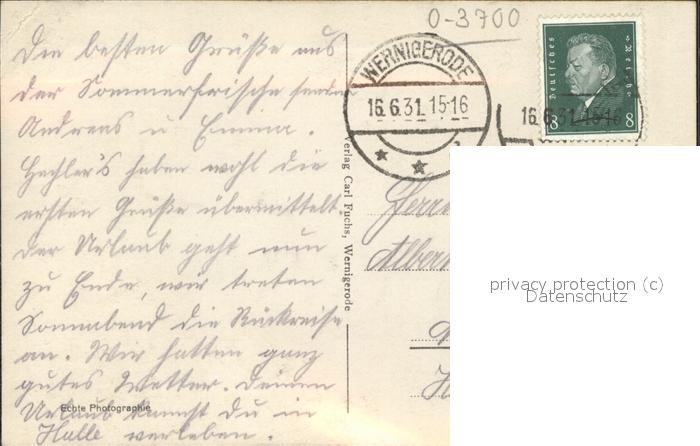 0-3700
Die besten Grüße aus
der Sommerfrische senden
Andreas u Emma.
Hechler's haben wohl die
ersten Grüße übermittelt.
Der Urlaub geht nun
zu Ende, wir treten
Sonnabend die Rückreise
an. Wir hatten ganz
gutes Wetter. Deinen
Urlaub kannst Du in
Halle verleben.
Echte Photographie
Verlag Carl Fuchs, Wernigerode
WERNIGERODE
16.6.31.15-16
Deutsches Reich
8 8
16.6.31.15-16
Herrn
Albert
privacy protection (c)
Datenschutz